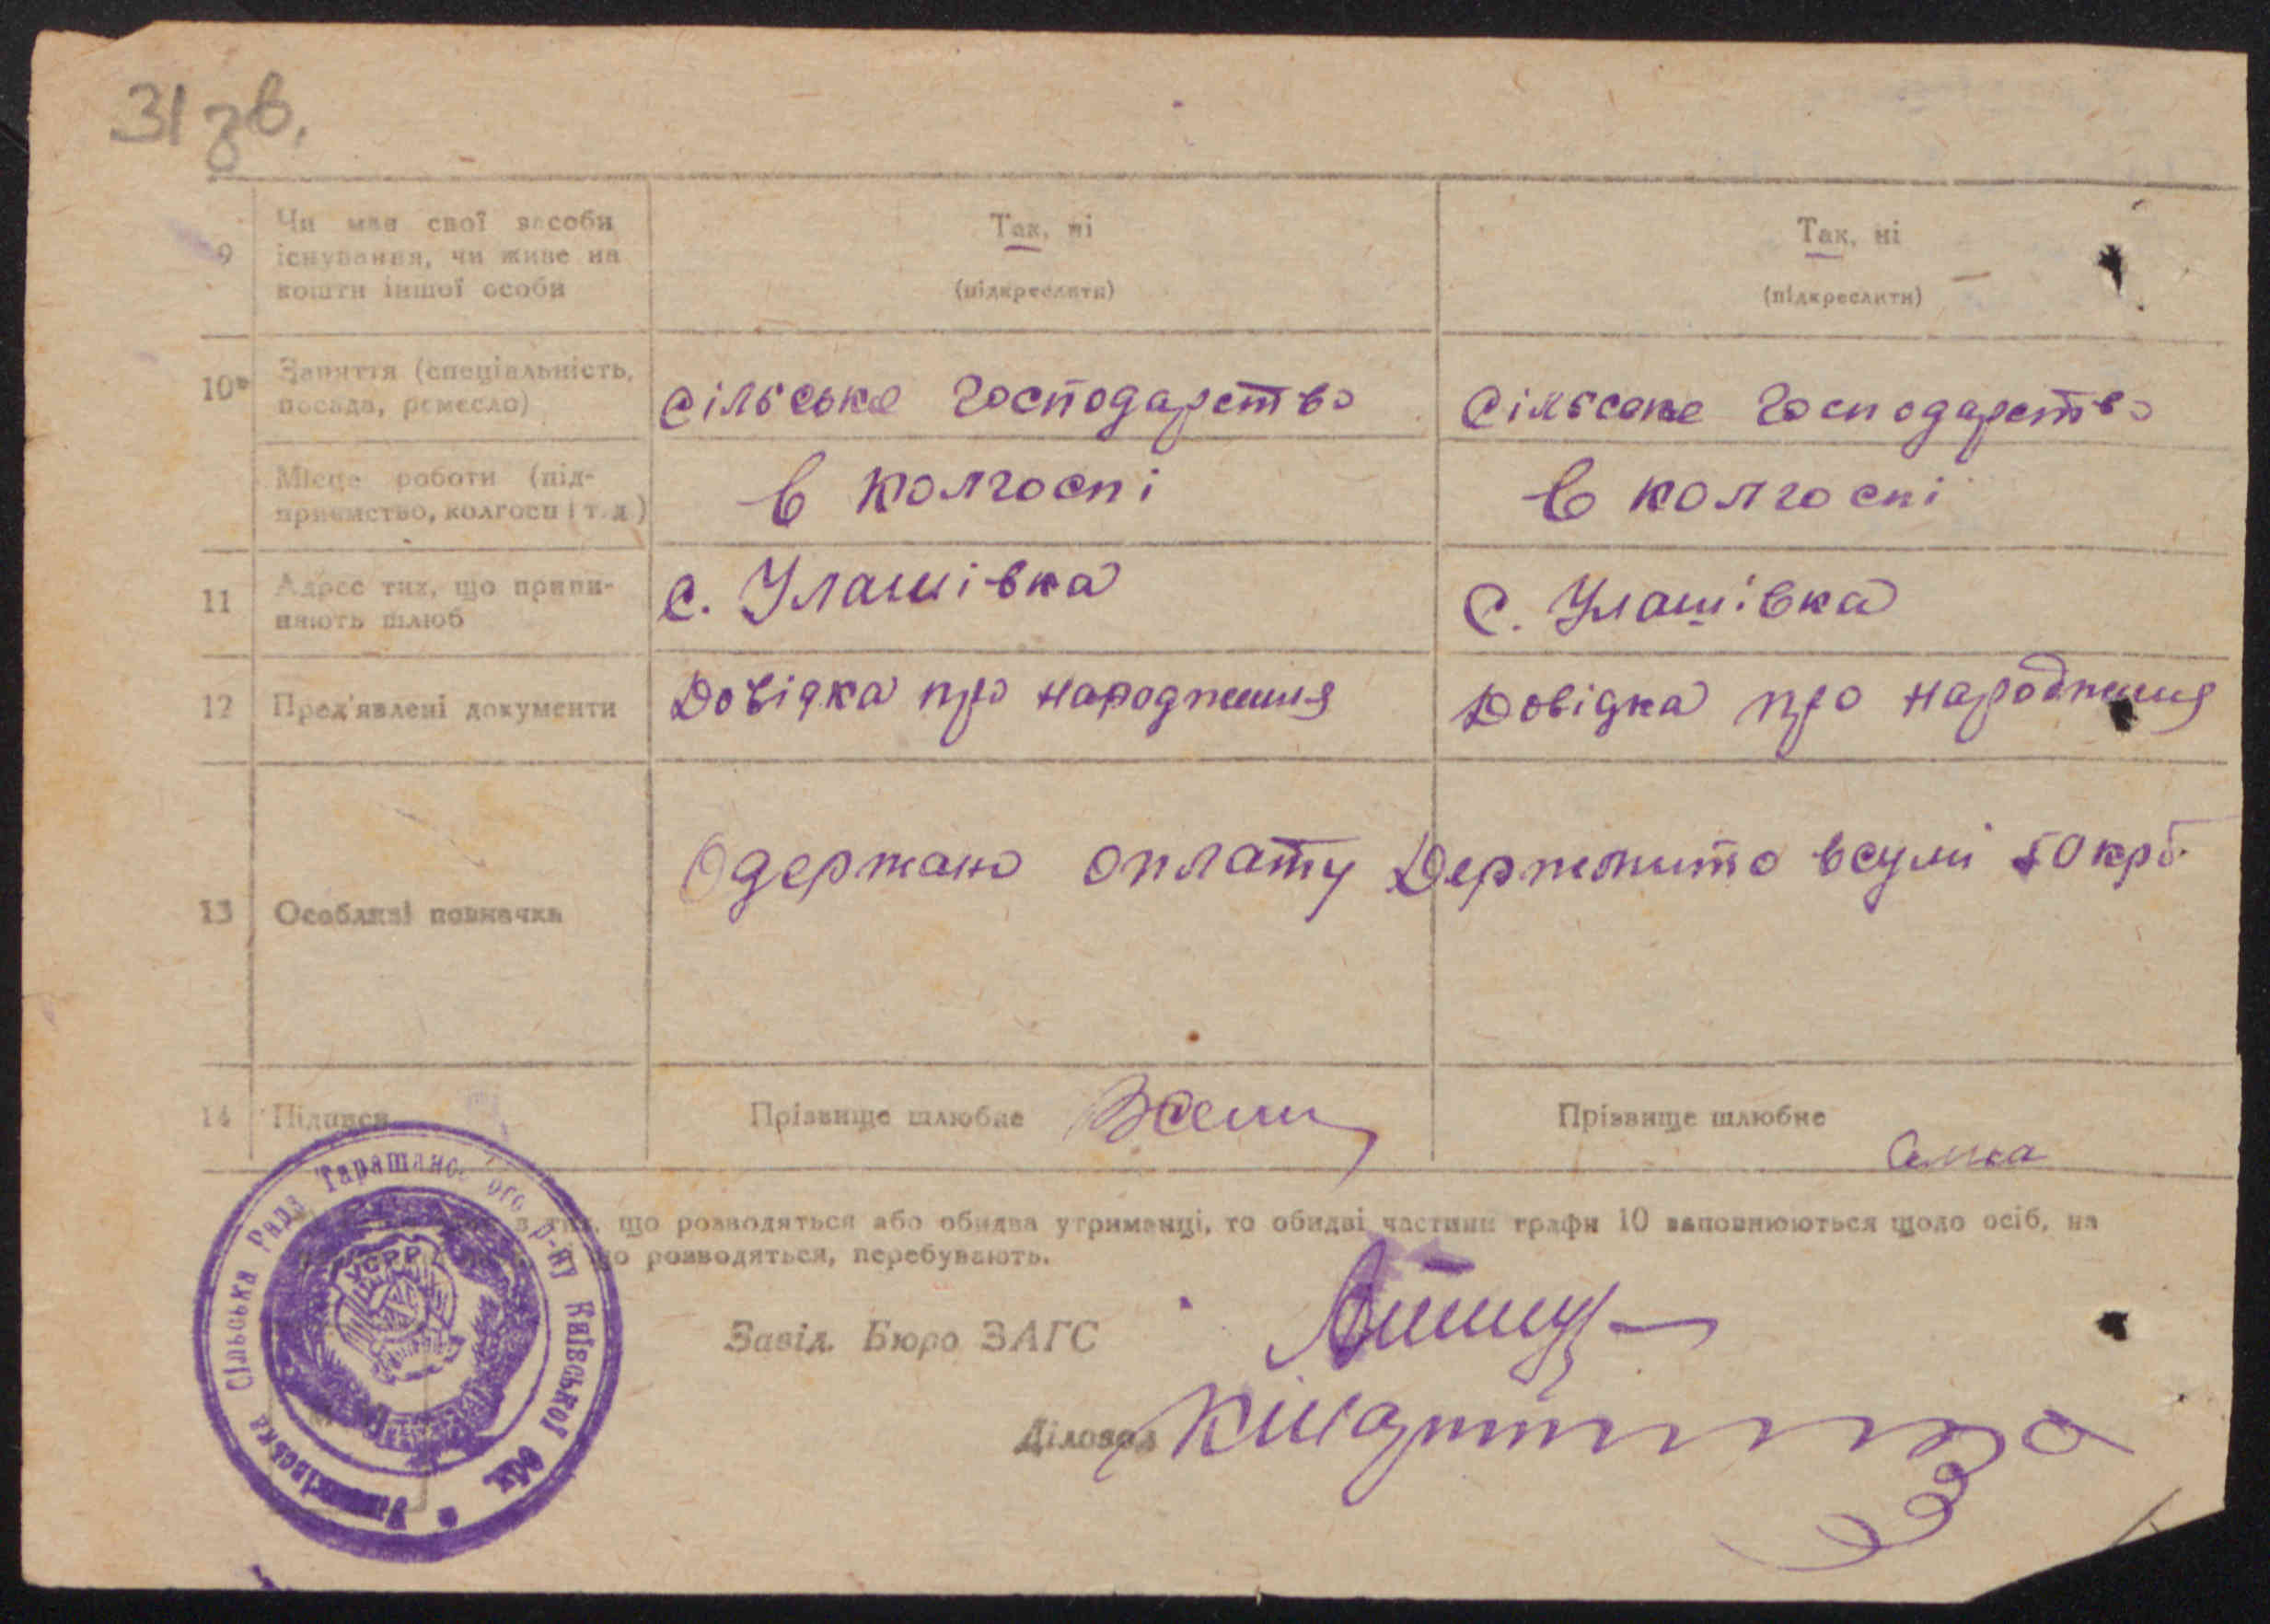 31 зв.
9 Чи має свої засоби існування, чи живе на кошти іншої особи
Так, ні
(підкреслити)
Так, ні
(підкреслити)
10 Заняття (спеціальність, посада, ремесло)
сільське господарство
сільське господарство
Місце роботи (підприємство, колгосп і т.д.)
в колгоспі
в колгоспі
11 Адрес тих, що припиняють шлюб
с. Улашівка
с. Улашівка
12 Пред'явлені документи
Довідка про народження
Довідка про народження
13 Особливі позначки
Одержано оплату Держмито всумі 50 крб
14 Підписи
Прізвище шлюбне
Прізвище шлюбне
що розводяться або обидва утриманці, то обидві частини графи 10 заповнюються щодо осіб, на
що розводяться, перебувають.
Завід. Бюро ЗАГС
Діловод
Сільська Рада Таращанського р-ну Київської обл.
УСРР